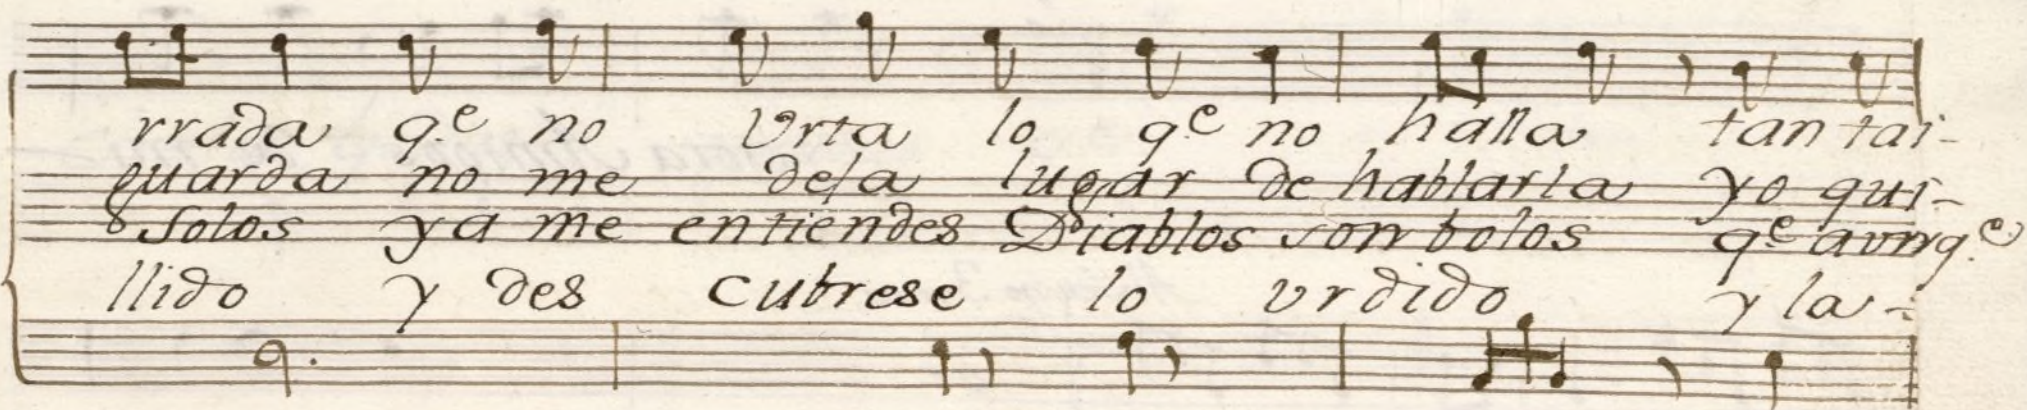 rrada q.e no Urta lo q.e no halla tan tai-
guarda no me deja lugar de hablarla yo qui-
Solos ya me entiendes Diablos son bolos q.e aunq.e
llido y des cubrese lo urdido y la-